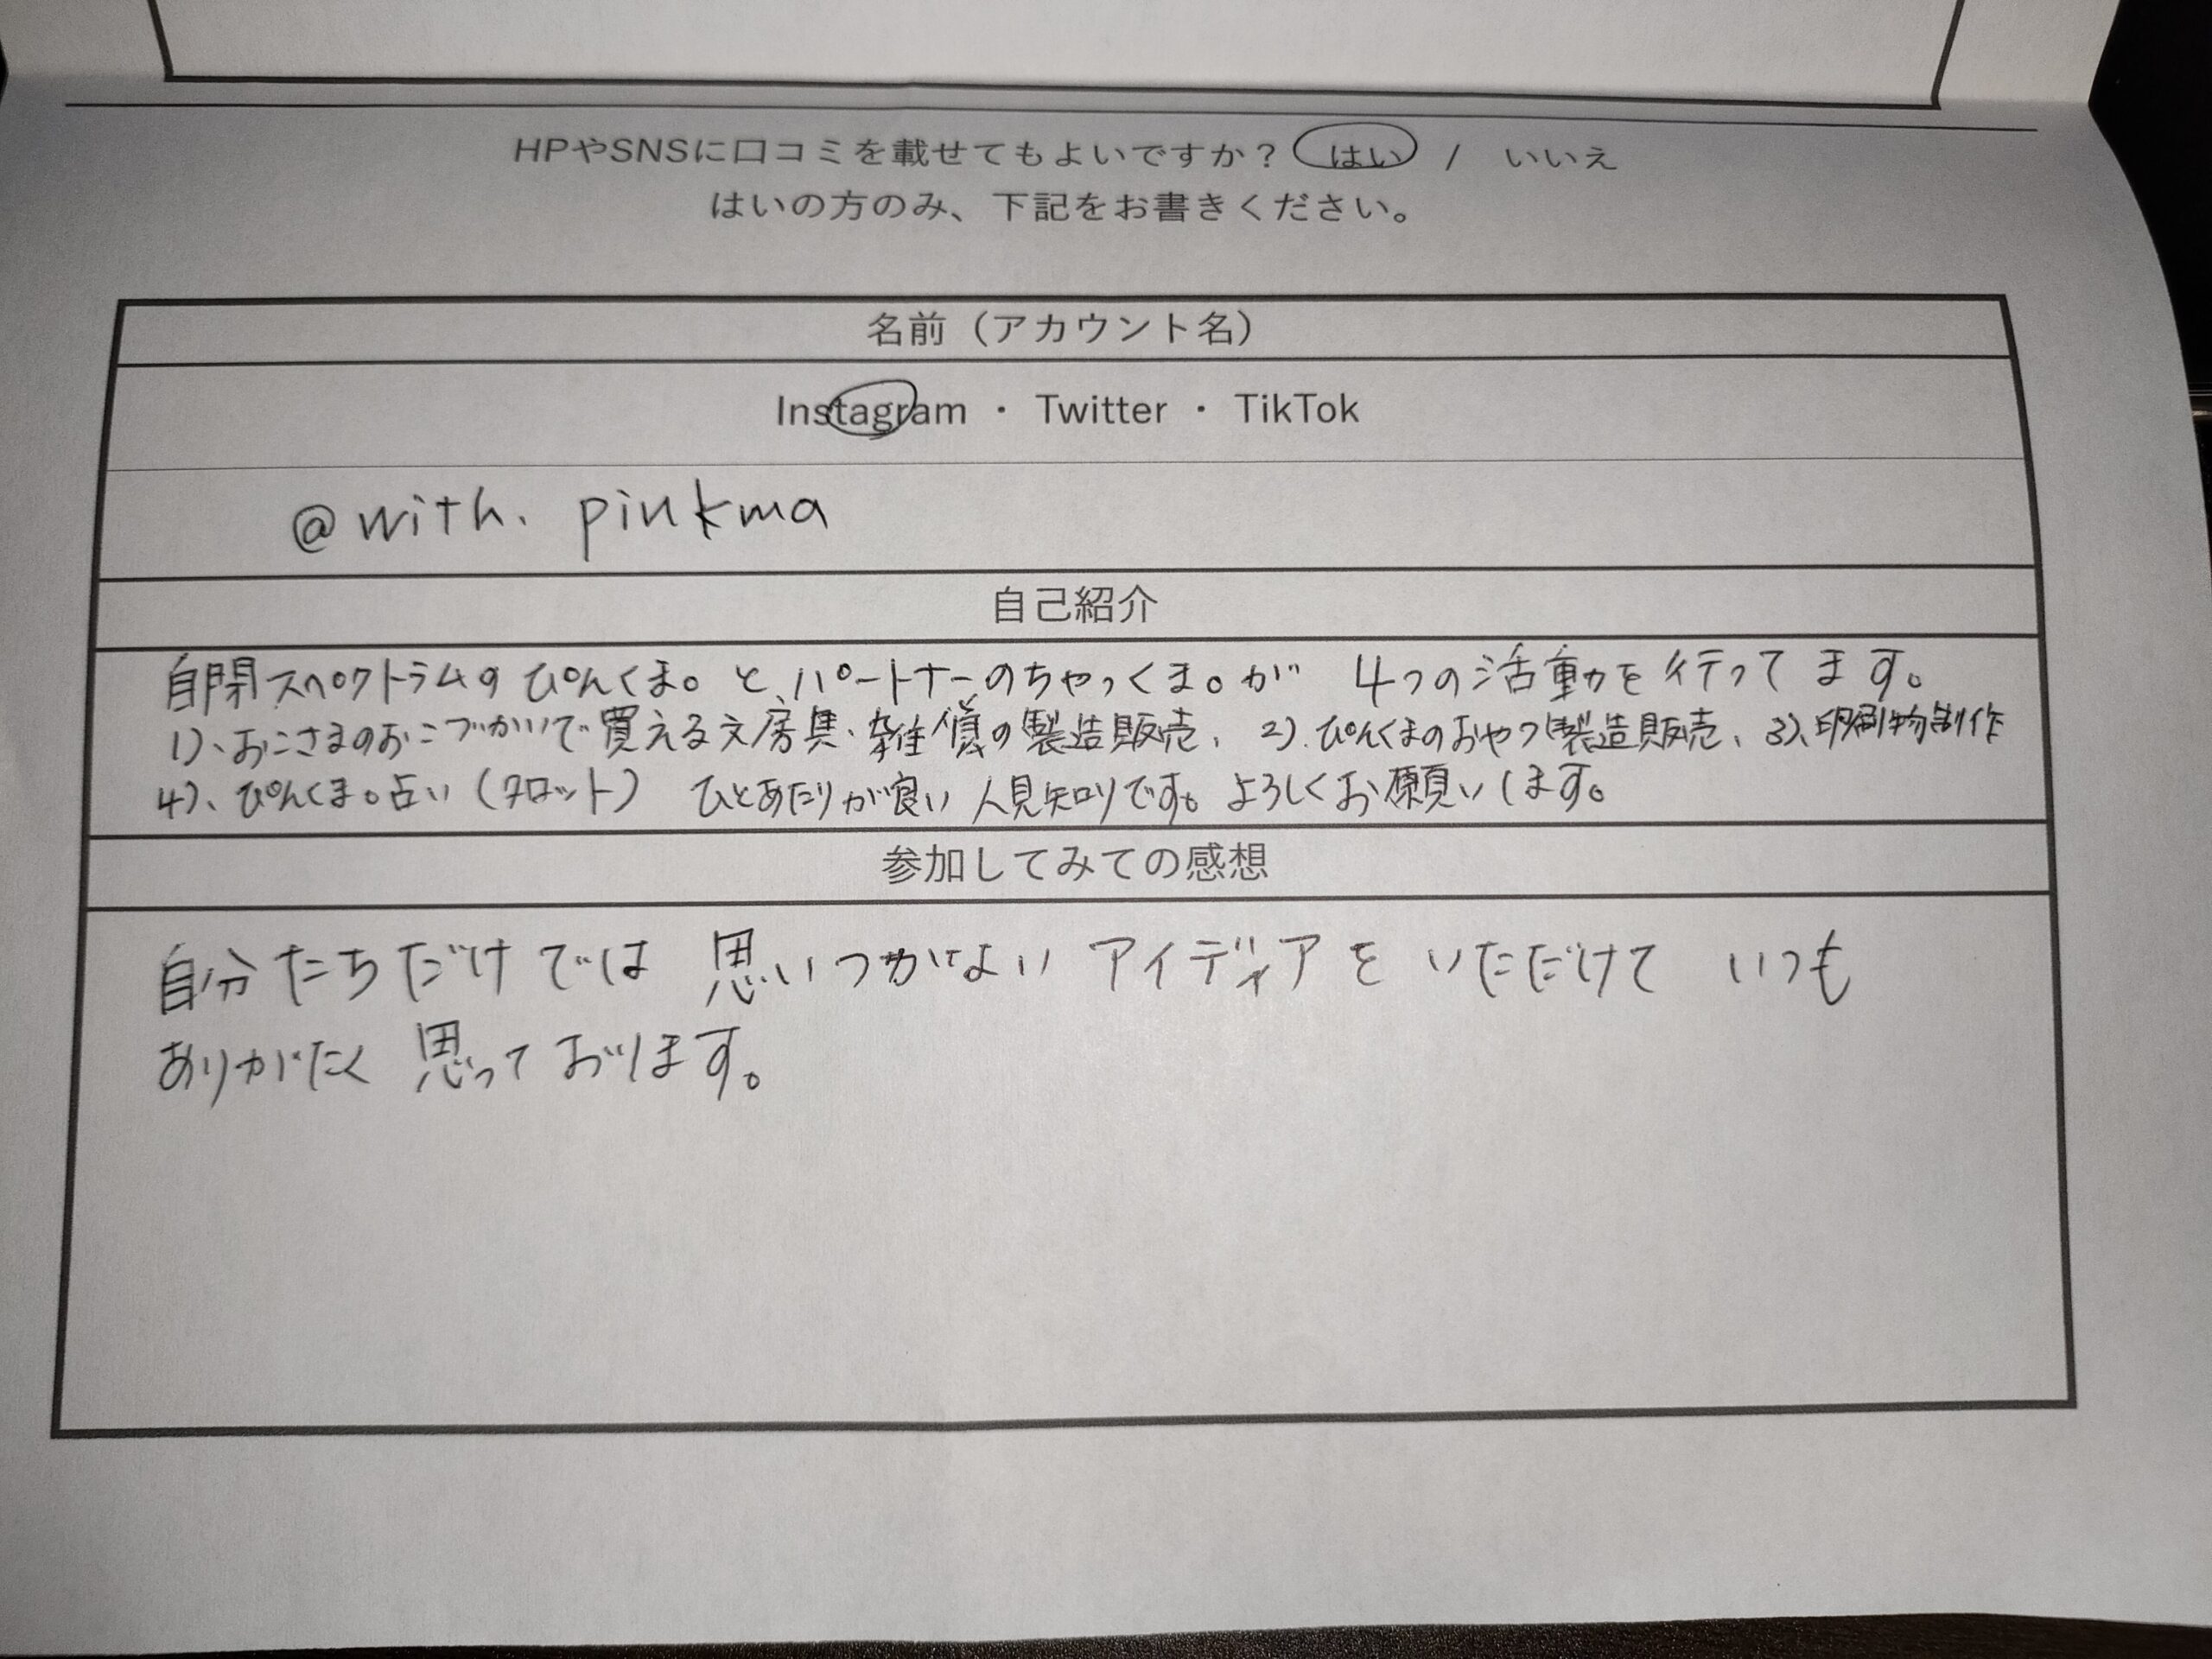 HPやSNSに口コミを載せてもよいですか? はい / いいえ
はいの方のみ、下記をお書きください。
名前(アカウント名)
Instagram ・ Twitter ・ TikTok
@with.pinkma
自己紹介
自閉スペクトラムのぴんくま。と、パートナーのちゃっくま。が 4つの活動を行ってます。
1)、おこさまのおこづかいで買える文房具・雑貨の製造販売、2)、ぴんくまのおやつ製造販売、3)、印刷物制作
4)、ぴんくま。占い(タロット) ひとあたりが良い人見知りです。よろしくお願いします。
参加してみての感想
自分たちだけでは思いつかないアイディアをいただけていつも
ありがたく思っております。